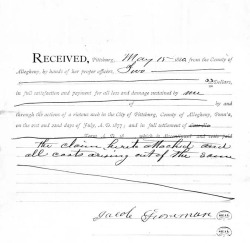 RECEIVED, Pittsburg, May 15 1880 from the County of
Allegheny, by hands of her proper officers, Two
Dollars,
in full satisfaction and payment for all loss and damage sustained by me
of by and
through the actions of a riotous mob in the City of Pittsburg, County of Allegheny, Penn'a,
on the 21st and 22nd days of July, A. D. 1877; and in full settlement of
the claim hereto attached and
all costs arising out of the same
Jacob
SEAL
SEAL